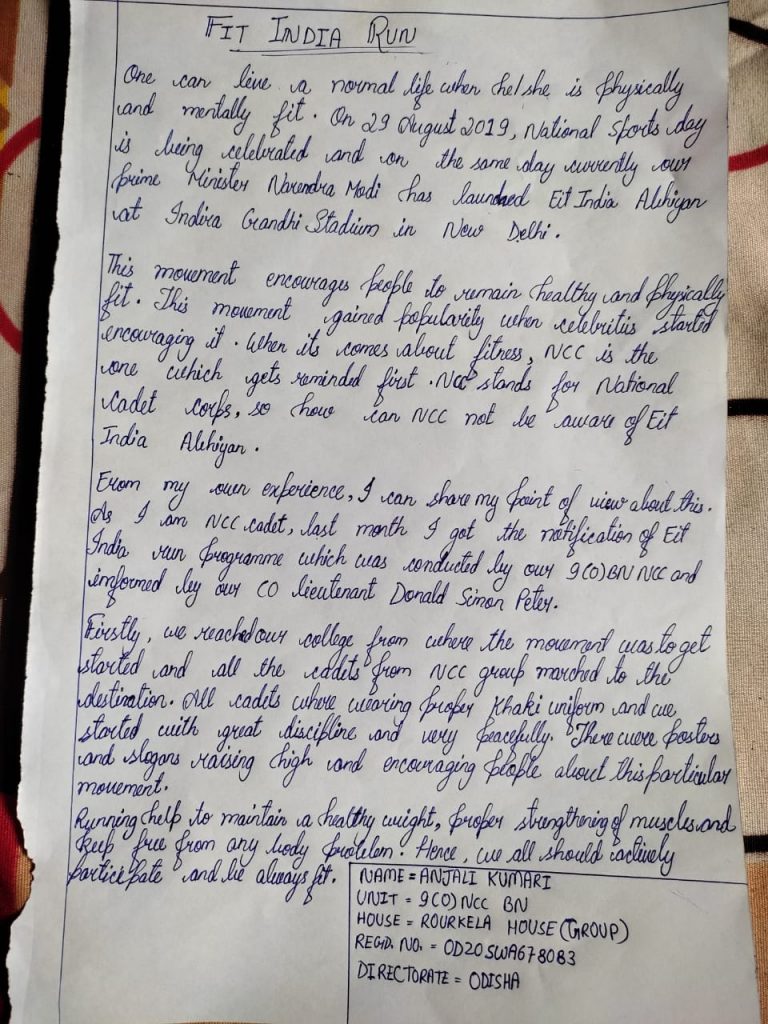 FIT INDIA RUN
One can live a normal life when he/she is physically
and mentally fit. On 29 August 2019, National Sports day
is being celebrated and on the same day currently our
prime Minister Narendra Modi has launched Fit India Abhiyan
at Indira Grandhi Stadium in New Delhi.
This movement encourages people to remain healthy and physically
fit. This movement gained popularity when celebritiis started
encouraging it. When its comes about fitness, NCC is the
one which gets reminded first. NCC stands for National
cadet corps, so how can NCC not be aware of Fit
India Abhiyan.
From my own experience, I can share my point of view about this.
As I am NCC cadet, last month I got the notification of Fit
India run programme which was conducted by our 9(O)BN NCC and
informed by our CO lieutenant Donald Simon Peter.
Firstly, we reached our college from where the movement was to get
started and all the cadets from NCC group marched to the
destination. All cadets where wearing proper Khaki uniform and we
started with great discipline and very peacefully. There were posters
and slogans raising high and encouraging people about this particular
movement.
Running help to maintain a healthy weight, proper strengthening of muscles and
keep free from any body problem. Hence, we all should actively
participate and be always fit.
NAME = ANJALI KUMARI
UNIT = 9(O) NCC BN
HOUSE = ROURKELA HOUSE (GROUP)
REGD. NO. = OD20SWA678083
DIRECTORATE = ODISHA